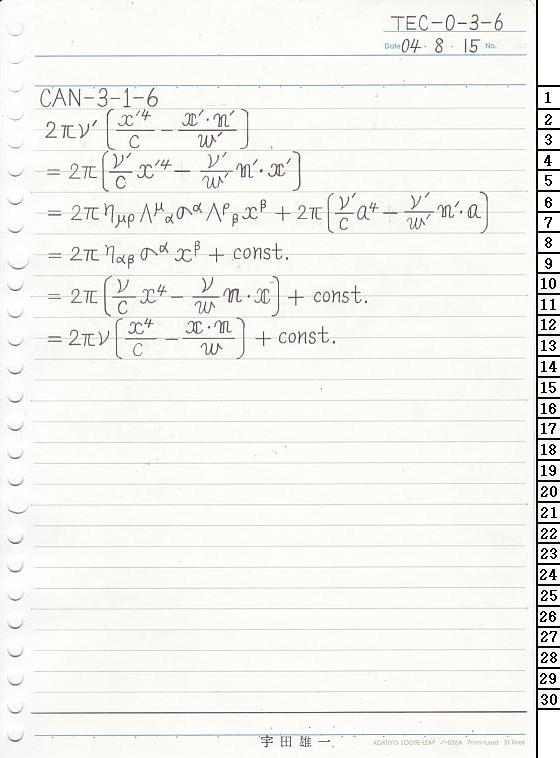 TEC-0-3-6
Date 04・8・15 No.
CAN-3-1-6
2πν′[x′⁴/c − x′·n′/w′]
= 2π[ν′/c x′⁴ − ν′/w′ n′·x′]
= 2πη_μρ Λ^μ_α σ^α Λ^ρ_β x^β + 2π[ν′/c a⁴ − ν′/w′ n′·a]
= 2πη_αβ σ^α x^β + const.
= 2π[ν/c x⁴ − ν/w n·x] + const.
= 2πν[x⁴/c − x·n/w] + const.
1
2
3
4
5
6
7
8
9
10
11
12
13
14
15
16
17
18
19
20
21
22
23
24
25
26
27
28
29
30
宇田雄一
KOKUYO LOOSE-LEAF ノ-836A 7mm ruled 31 lines